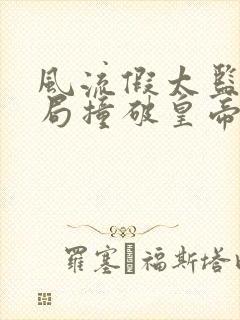 風流假太監
局撞破皇帝
羅塞 福斯塔